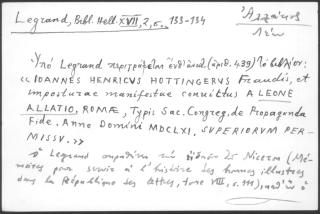 Legrand, Bibl. Hell. XVII, 2, σ. 133-134
Ἀλλάτιος
Λέων
Ὑπὸ Legrand περιγράφεται ἐνθ' ἀνωτ. (ἀριθ. 439) τὸ βιβλίον:
«IOANNES HENRICVS HOTTINGERVS Fraudis, et
imposturae manifestae convictus A LEONE
ALLATIO, ROMÆ, Typis Sac. Congreg. de Propaganda
Fide. Anno Domini MDCLXI. SVPERIORVM PER-
MISSV.»
ὁ Legrand 25 Niceron (Mé-
moires pour servir à l'histoire des hommes illustres
dans la République des lettres, tome VIII, σ. 111),